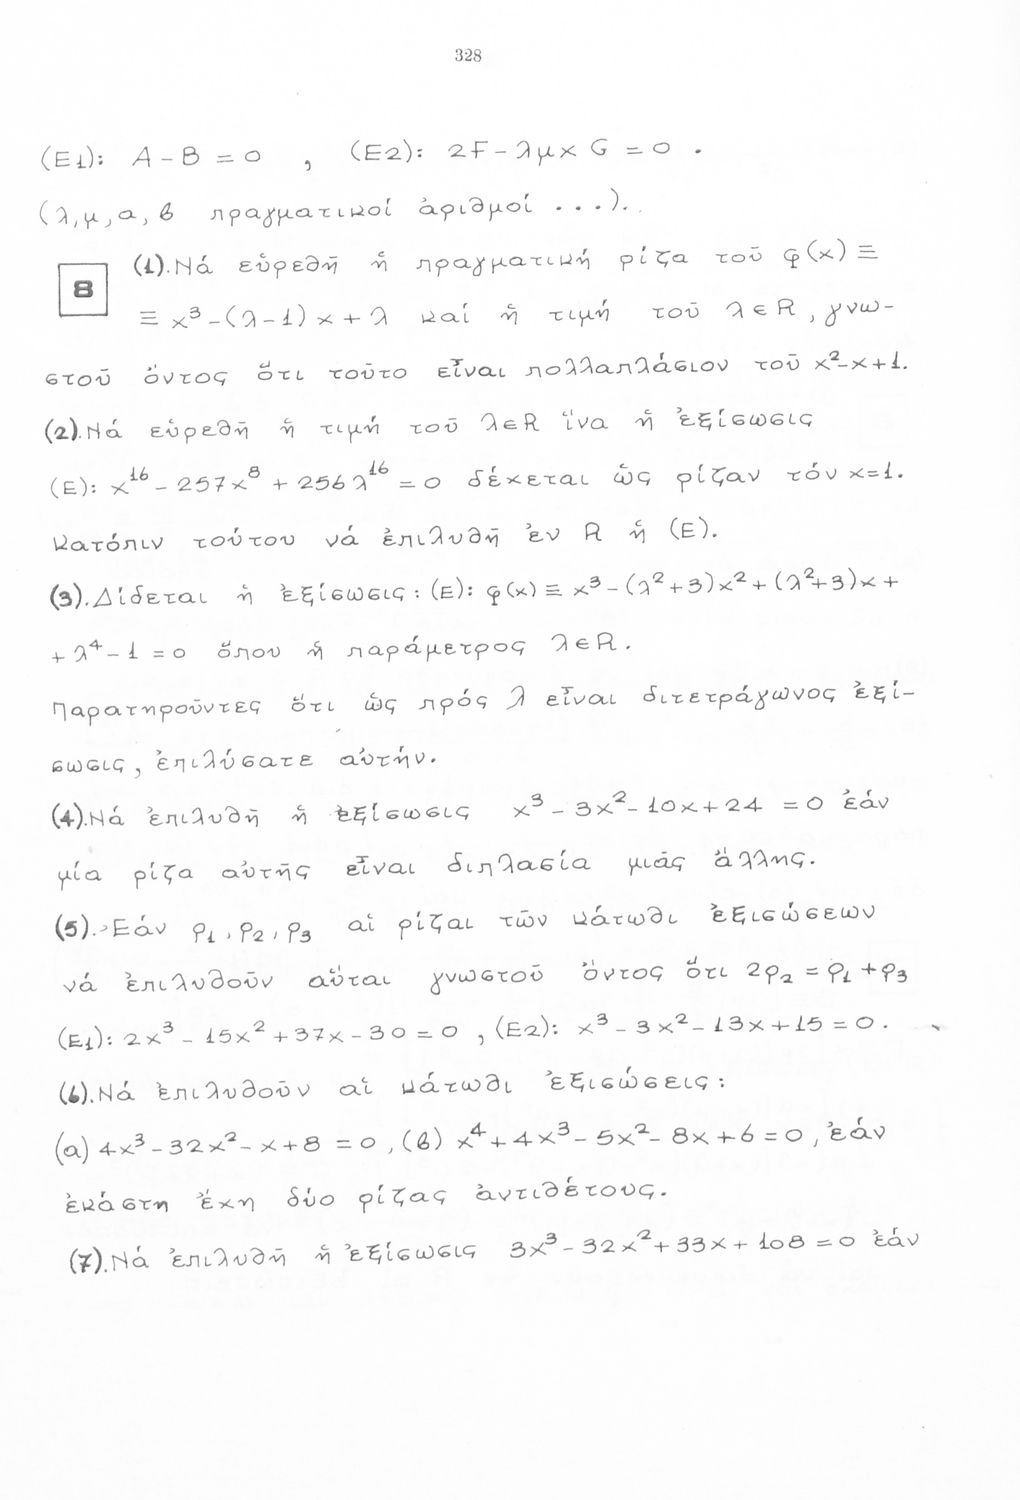 328
(E1): A - B = 0 , (E2): 2F - λμx G = 0 .
(λ,μ,α,β πραγματικοί ἀριθμοί ...).
(1). Νά εὑρεθῆ ἡ πραγματική ρίζα τοῦ φ(x) ≡
8
≡ x³ - (λ-1)x + λ καί ἡ τιμή τοῦ λ∈R, γνω-
στοῦ ὄντος ὅτι τοῦτο εἶναι πολλαπλάσιον τοῦ x²-x+1.
(2). Νά εὑρεθῆ ἡ τιμή τοῦ λ∈R ἵνα ἡ ἐξίσωσις
(E): x¹⁶ - 257x⁸ + 256λ¹⁶ = 0 δέχεται ὡς ρίζαν τόν x=1.
Κατόπιν τούτου νά ἐπιλυθῆ ἐν R ἡ (E).
(3). Δίδεται ἡ ἐξίσωσις: (E): φ(x) ≡ x³ - (λ²+3)x² + (λ²+3)x +
+ λ⁴ - 1 = 0 ὅπου ἡ παράμετρος λ∈R.
Παρατηροῦντες ὅτι ὡς πρός λ εἶναι διτετράγωνος ἐξί-
σωσις, ἐπιλύσατε αὐτήν.
(4). Νά ἐπιλυθῆ ἡ ἐξίσωσις x³ - 3x² - 10x + 24 = 0 ἐάν
μία ρίζα αὐτῆς εἶναι διπλασία μιᾶς ἄλλης.
(5). Ἐάν ρ₁, ρ₂, ρ₃ αἱ ρίζαι τῶν κάτωθι ἐξισώσεων
νά ἐπιλυθοῦν αὗται γνωστοῦ ὄντος ὅτι 2ρ₂ = ρ₁ + ρ₃
(E1): 2x³ - 15x² + 37x - 30 = 0 , (E2): x³ - 3x² - 13x + 15 = 0 .
(6). Νά ἐπιλυθοῦν αἱ κάτωθι ἐξισώσεις:
(α) 4x³ - 32x² - x + 8 = 0 , (β) x⁴ + 4x³ - 5x² - 8x + 6 = 0 , ἐάν
ἑκάστη ἔχη δύο ρίζας ἀντιθέτους.
(7). Νά ἐπιλυθῆ ἡ ἐξίσωσις 3x³ - 32x² + 33x + 108 = 0 ἐάν